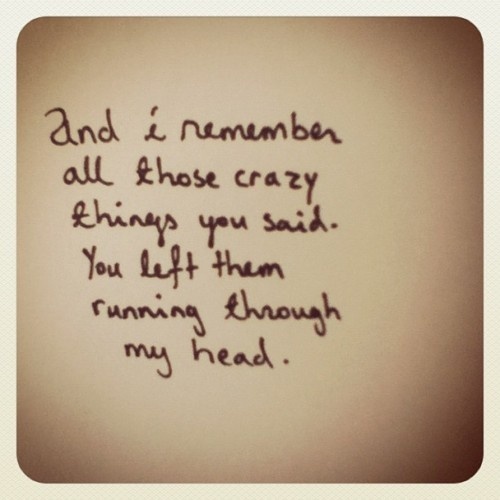 And i remember
all those crazy
things you said.
You left them
running through
my head.